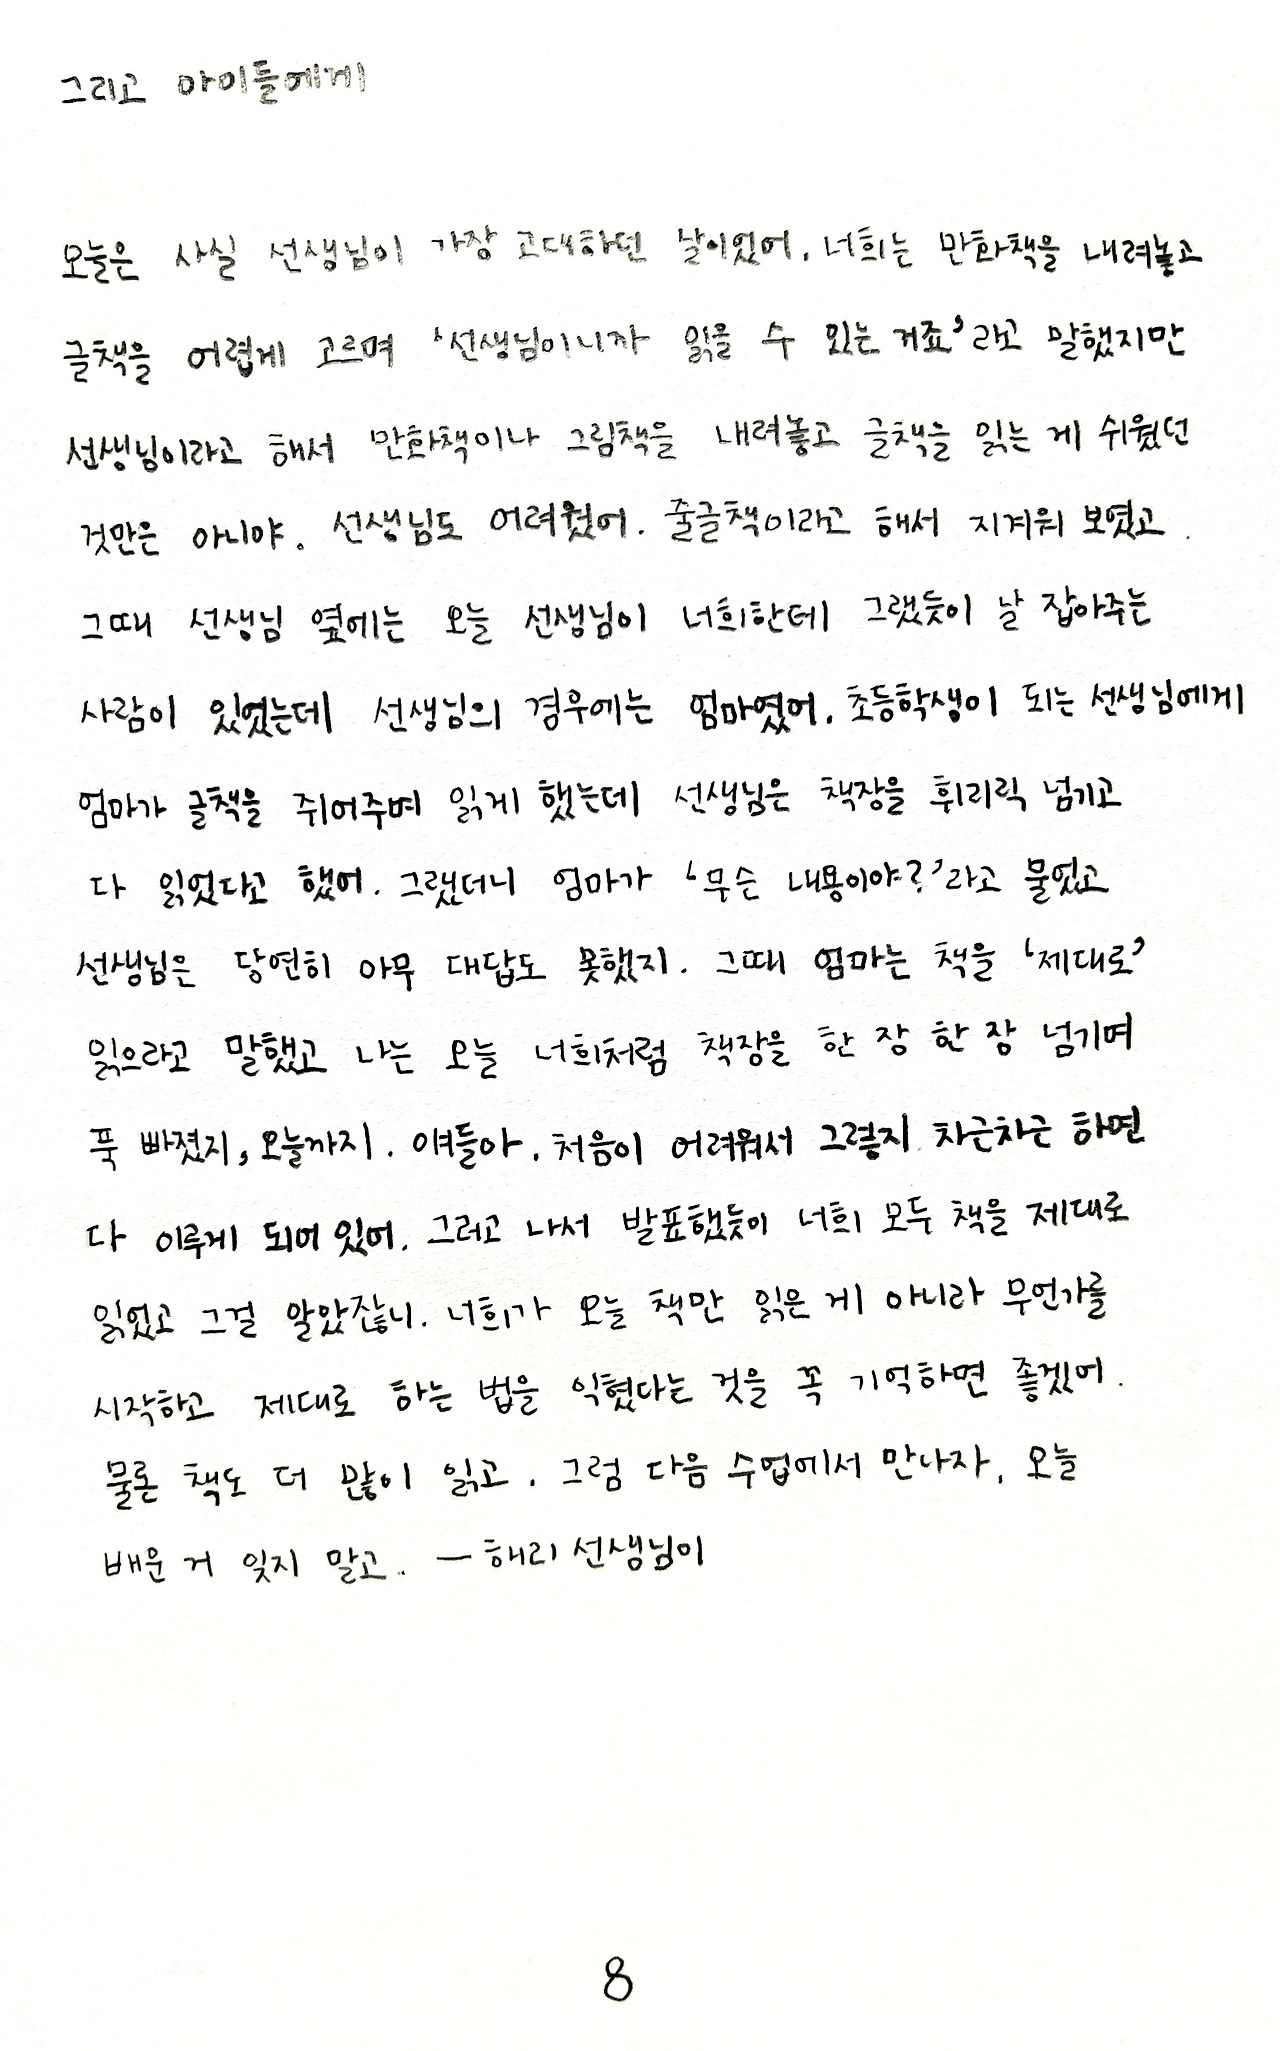 그리고 아이들에게
오늘은 사실 선생님이 가장 고대하던 날이었어. 너희는 만화책을 내려놓고
글책을 어렵게 고르며 '선생님이니까 읽을 수 있는 거죠'라고 말했지만
선생님이라고 해서 만화책이나 그림책을 내려놓고 글책을 읽는 게 쉬웠던
것만은 아니야. 선생님도 어려웠어. 줄글책이라고 해서 지겨워 보였고.
그때 선생님 옆에는 오늘 선생님이 너희한테 그랬듯이 날 잡아주는
사람이 있었는데 선생님의 경우에는 엄마였어. 초등학생이 되는 선생님에게
엄마가 글책을 쥐어주며 읽게 했는데 선생님은 책장을 휘리릭 넘기고
다 읽었다고 했어. 그랬더니 엄마가 '무슨 내용이야?'라고 물었고
선생님은 당연히 아무 대답도 못했지. 그때 엄마는 책을 '제대로'
읽으라고 말했고 나는 오늘 너희처럼 책장을 한 장 한 장 넘기며
푹 빠졌지, 오늘까지. 얘들아. 처음이 어려워서 그렇지 차근차근 하면
다 이루게 되어 있어. 그러고 나서 발표했듯이 너희 모두 책을 제대로
읽었고 그걸 알았잖니. 너희가 오늘 책만 읽은 게 아니라 무언가를
시작하고 제대로 하는 법을 익혔다는 것을 꼭 기억하면 좋겠어.
물론 책도 더 많이 읽고. 그럼 다음 수업에서 만나자. 오늘
배운 거 잊지 말고.. — 해리 선생님이
8